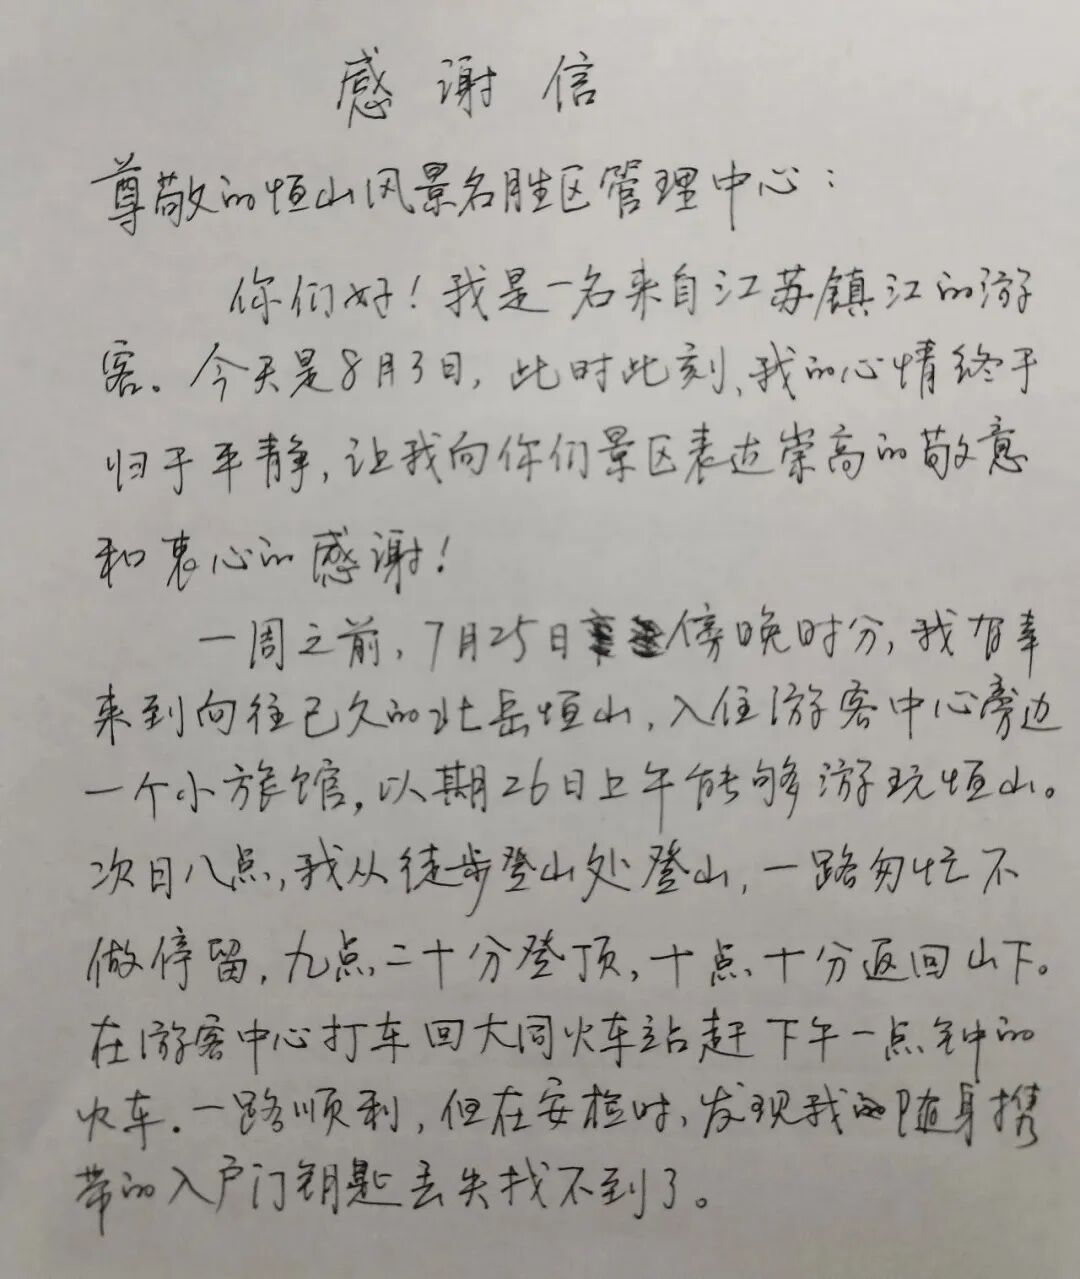 感谢信
尊敬的恒山风景名胜区管理中心：
你们好！我是一名来自江苏镇江的游
客。今天是8月3日，此时此刻、我的心情终于
归于平静，让我向你们景区表达崇高的敬意
和衷心的感谢！
一周之前，7月25日傍晚时分，我有幸
来到向往已久的北岳恒山，入住游客中心旁边
一个小旅馆，以期26日上午能够游玩恒山。
次日八点，我从徒步登山处登山，一路匆忙不
做停留，九点二十分登顶，十点十分返回山下。
在游客中心打车回大同火车站赶下午一点钟的
火车．一路顺利，但在安检时，发现我的随身携
带的入户门钥匙丢失找不到了。